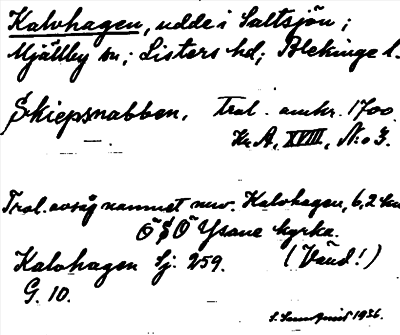 Kalvhagen, udde i Saltsjön;
Mjällby sn; Listers hd; Blekinge l.
Skiepsnabben, Trol. omkr. 1700.
Kr. A, XVIII, N:o 3.
Trol. avsåg namnet nuv. Kalvhagen, 6,2 km
ÖSÖ Ysane kyrka.
Kalvhagen Sj. 259. (Vänd!)
G. 10.
1936.